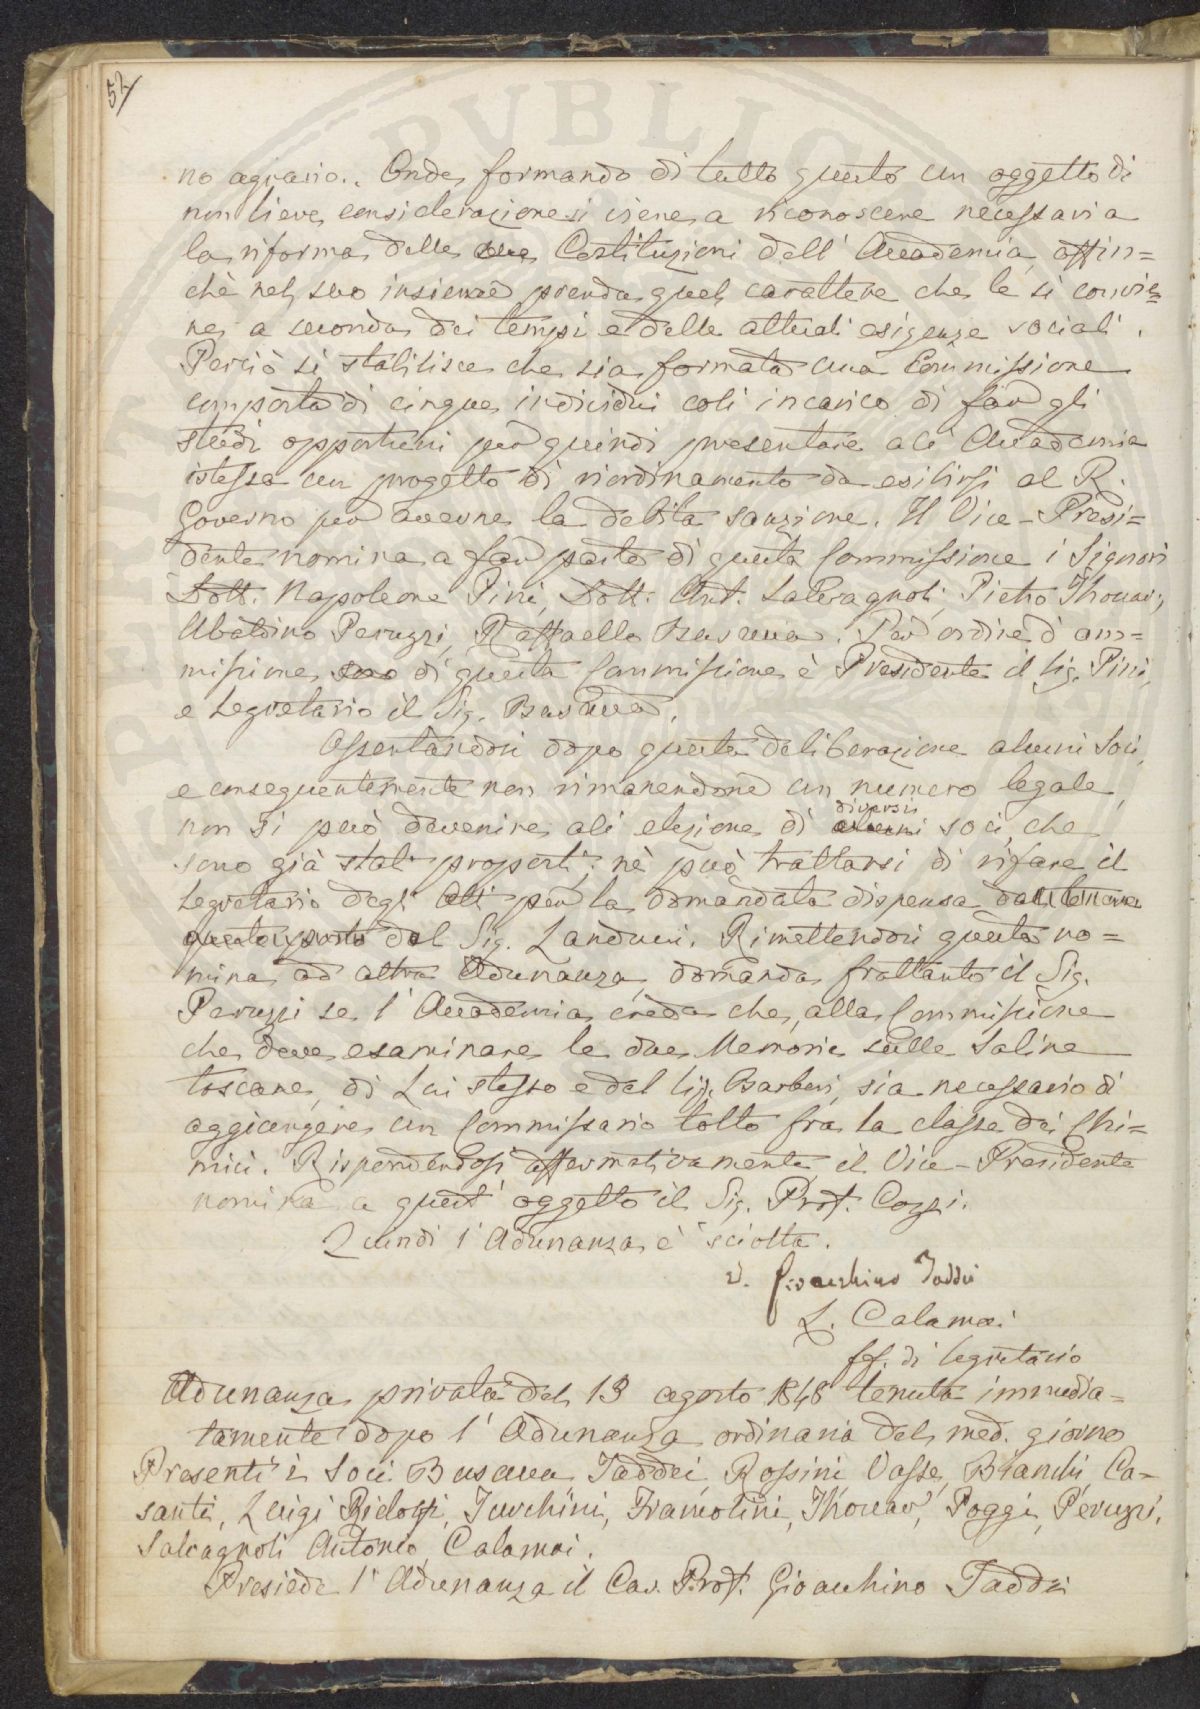 52
PVBLIC
no agrario. Onde formando di tutto questo un oggetto di
non lieve considerazione si viene a riconoscere necessaria
la riforma delle Costituzioni dell' Accademia, affin=
chè nel suo insieme prenda quel carattere che le si convie=
ne a seconda dei tempi e delle attuali esigenze sociali.
Perciò si stabilisce che sia formata una Commissione
composta di cinque individui coll' incarico di far gli
studi opportuni per quindi presentare all' Accademia
istessa un progetto di riordinamento da esibirsi al R.
Governo per averne la debita sanzione. Il Vice-Presi=
dente nomina a far parte di questa Commissione i Signori
Dott. Napoleone Pini, Dott. Ant. Salvagnoli, Pietro Thouar,
Ubaldino Peruzzi, Raffaello Busacca. Per ordine d' am=
missione di questa Commissione è Presidente il Sig. Pini,
e Segretario il Sig. Busacca.
Assentandosi dopo questa deliberazione alcuni Soci,
e conseguentemente non rimanendone un numero legale,
non si può devenire all' elezione di diversi soci, che
sono già stati proposti; nè può trattarsi di rifare il
Segretario degli Atti per la domandata dispensa
del Sig. Landucci. Rimettendosi questa no=
mina ad altra Adunanza, domanda frattanto il Sig.
Peruzzi se l' Accademia creda che, alla Commissione
che deve esaminare le due Memorie sulle Saline
toscane, di Lui stesso e del Sig. Barberi, sia necessario di
aggiungere un Commissario tolto fra la classe dei Chi=
mici. Rispondendosi affermativamente il Vice-Presidente
nomina a quest' oggetto il Sig. Prof. Cozzi.
Quindi l' Adunanza è sciolta.
V. Gioacchino Taddei
L. Calamai
ff. di Segretario
Adunanza privata del 13 agosto 1848 tenuta immedia=
tamente dopo l' Adunanza ordinaria del med. giorno
Presenti i Soci Busacca, Taddei, Rossini, Vasse, Bianchi, Ca=
santi, Luigi Ridolfi, Turchini, Franciolini, Thouar, Poggi, Peruzzi,
Salvagnoli Antonio, Calamai.
Presiede l' Adunanza il Cav. Prof. Gioacchino Taddei